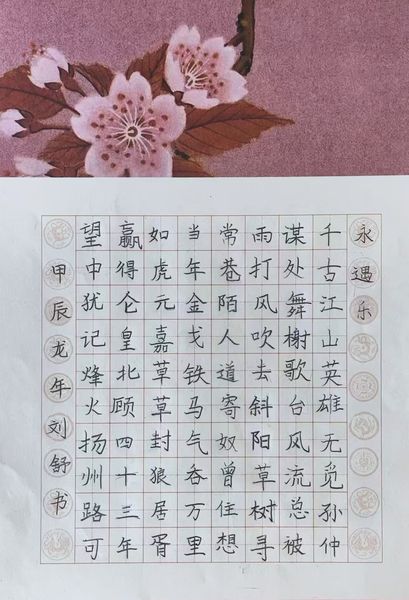 永遇乐
千古江山英雄无觅孙仲
谋处舞榭歌台风流总被
雨打风吹去斜阳草树寻
常巷陌人道寄奴曾住想
当年金戈铁马气吞万里
如虎元嘉草草封狼居胥
赢得仓皇北顾四十三年
望中犹记烽火扬州路可
甲辰龙年刘舒书